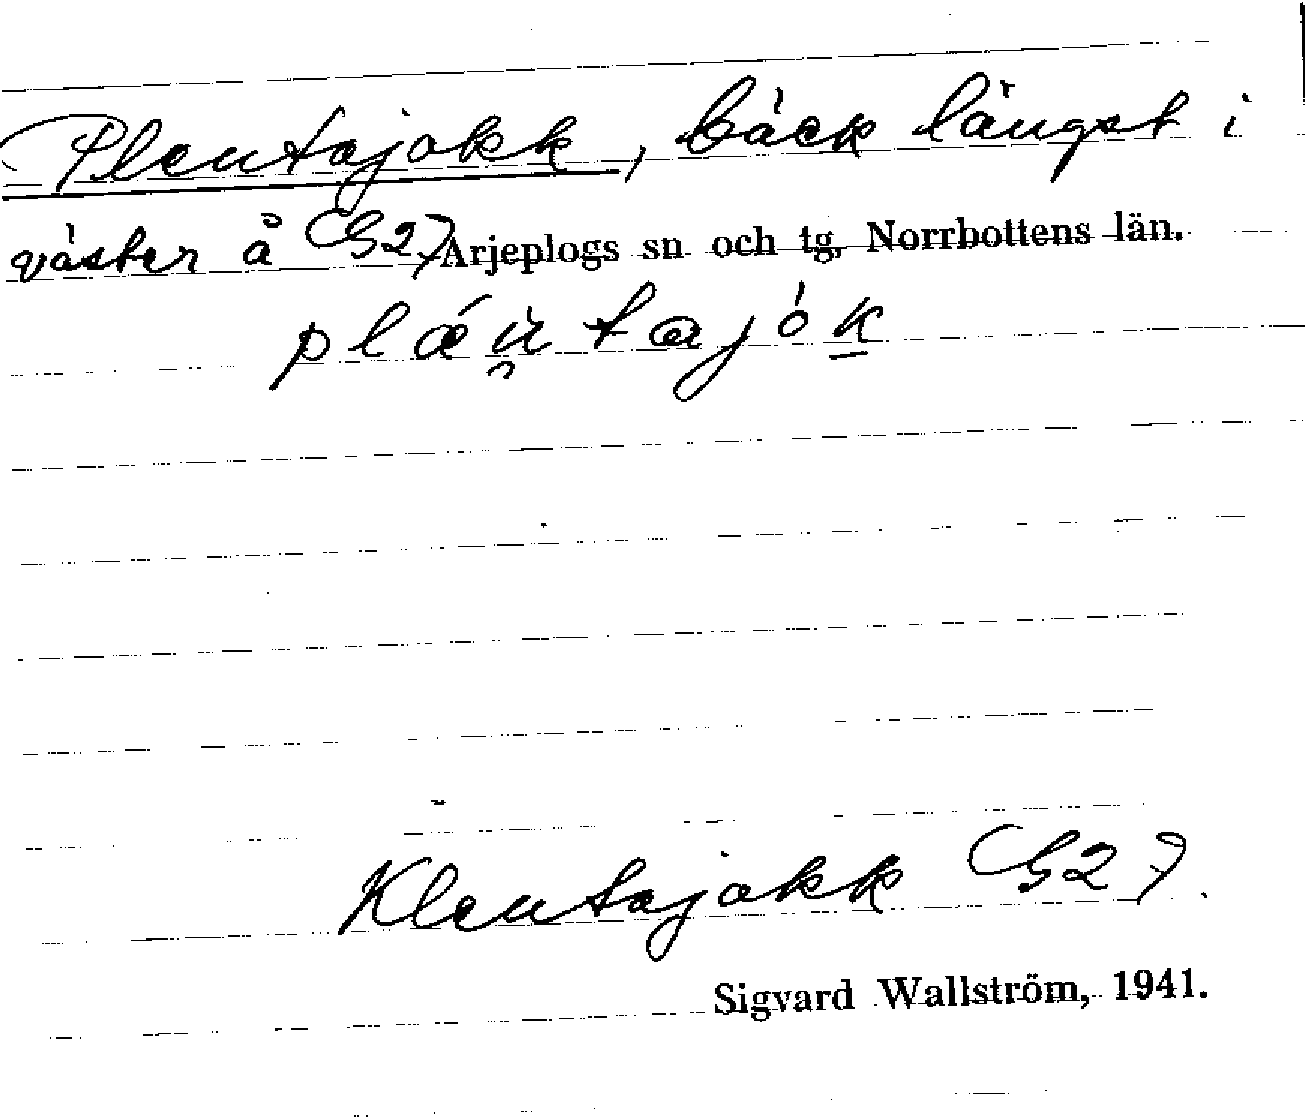 Pleutajokk, bäck längst i
väster å G27 Arjeplogs sn och tg, Norrbottens län.
plǽu̯tajók̲
Kleutajokk G27.
Sigvard Wallström, 1941.